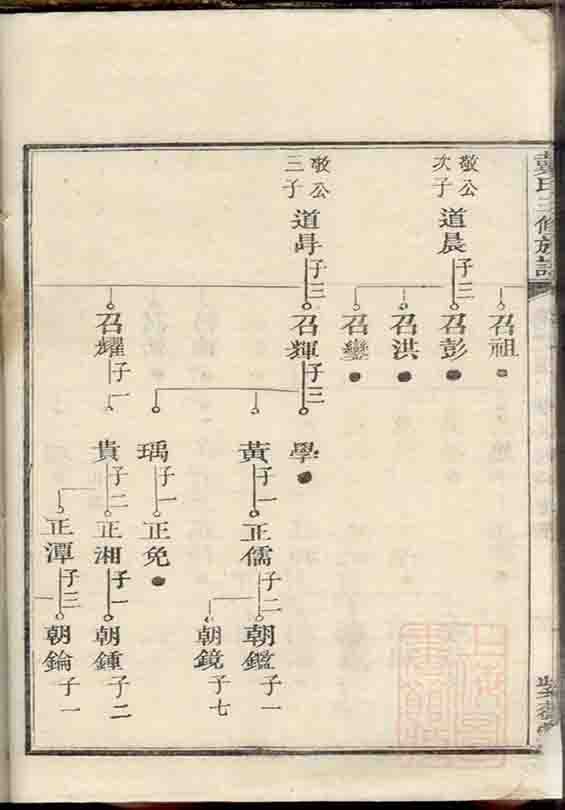 戴氏三修族譜
召祖
敬公
次子
道晨
子三
召彭
召洪
召鑾
敬公
三子
道㝵
子三
召輝
子三
學
黃
子一
正儒
子二
朝鑑
子一
朝鏡
子七
瑀
子一
正免
召耀
子一
貴
子二
正湘
子一
朝鍾
子二
正潭
子三
朝鑰
子一